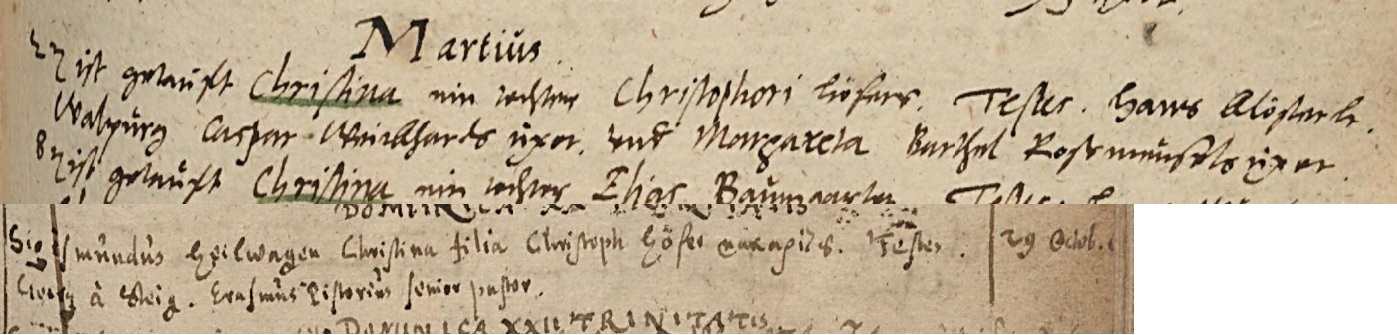 Martius.
27 ist getaufft Christina ein tochter Christophori Höfers. Testes. Hans Klösterle.
Walpurg Caspar Weickhards uxor. und Margareta Barthel Rosenmeusels uxor
8 ist getaufft Christina ein tochter Elias Baumgarten Testes
DOMINICA TRINITATIS
Sigismundus Heilwagen Christina filia Christoph Höfer Testes. 29 Octob.
Georg à Steig. Erasmus Pistorius senior pastor.
DOMINICA XXII TRINITATIS